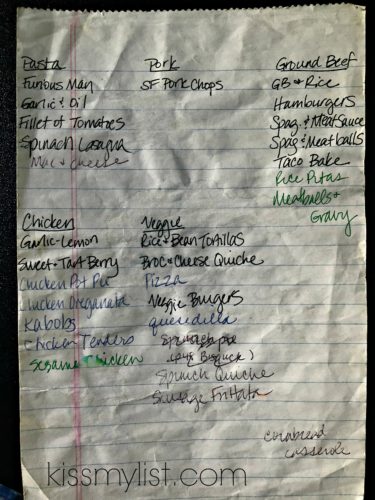 Pasta
Furious Man
Garlic & Oil
Fillet of Tomatoes
Spinach Lasagna
Mac & cheese
Pork
SF Pork Chops
Ground Beef
GB & Rice
Hamburgers
Spag. & Meat Sauce
Spag & Meatballs
Taco Bake
Rice Pitas
Meatballs &
Gravy
Chicken
Garlic-Lemon
Sweet & Tart Berry
Chicken Pot Pie
Chicken Oreganata
Kabobs
Chicken Tenders
Sesame Chicken
Veggie
Rice & Bean Tortillas
Broc & Cheese Quiche
Pizza
Veggie Burgers
quesedilla
Spinach pie
(w/ Bisquick)
Spinach Quiche
Sausage Frittata
cornbread
casserole
kissmylist.com